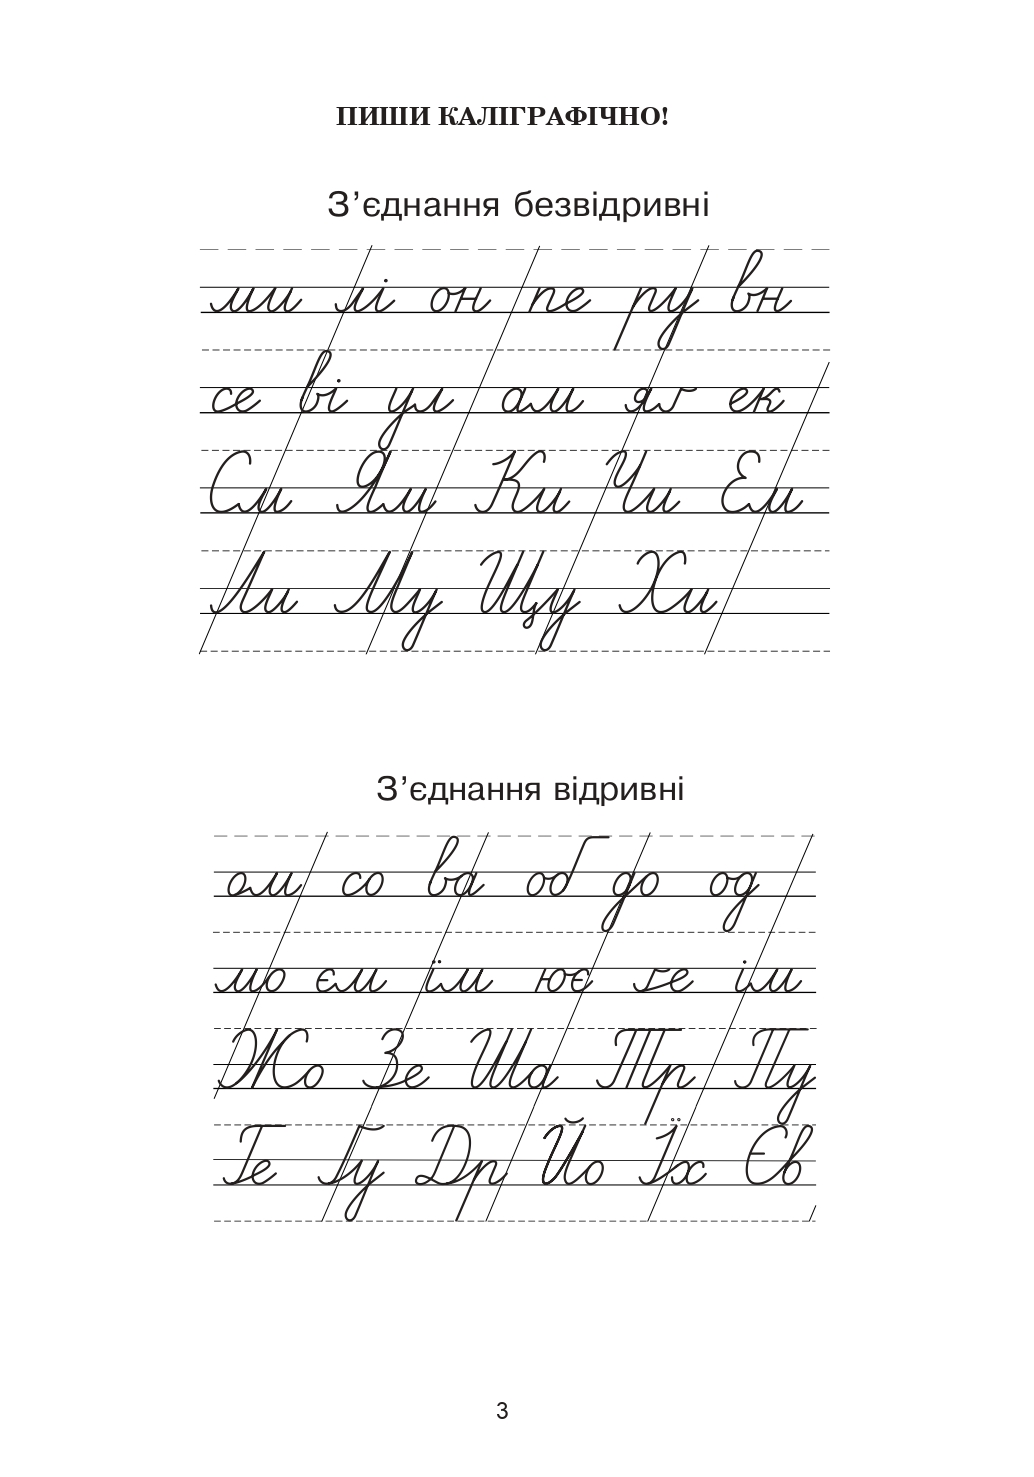 ПИШИ КАЛІГРАФІЧНО!
З’єднання безвідривні
ми лі он пе ру вн
се ві ул ам яг ек
См Ям Ки Чи Ем
Ли Му Щу Хи
З’єднання відривні
ом со ва об до од
мо єм їм ює ге ім
Жо Зе Ша Тр Пу
Ге Гу Др Йо Їх Єв
3